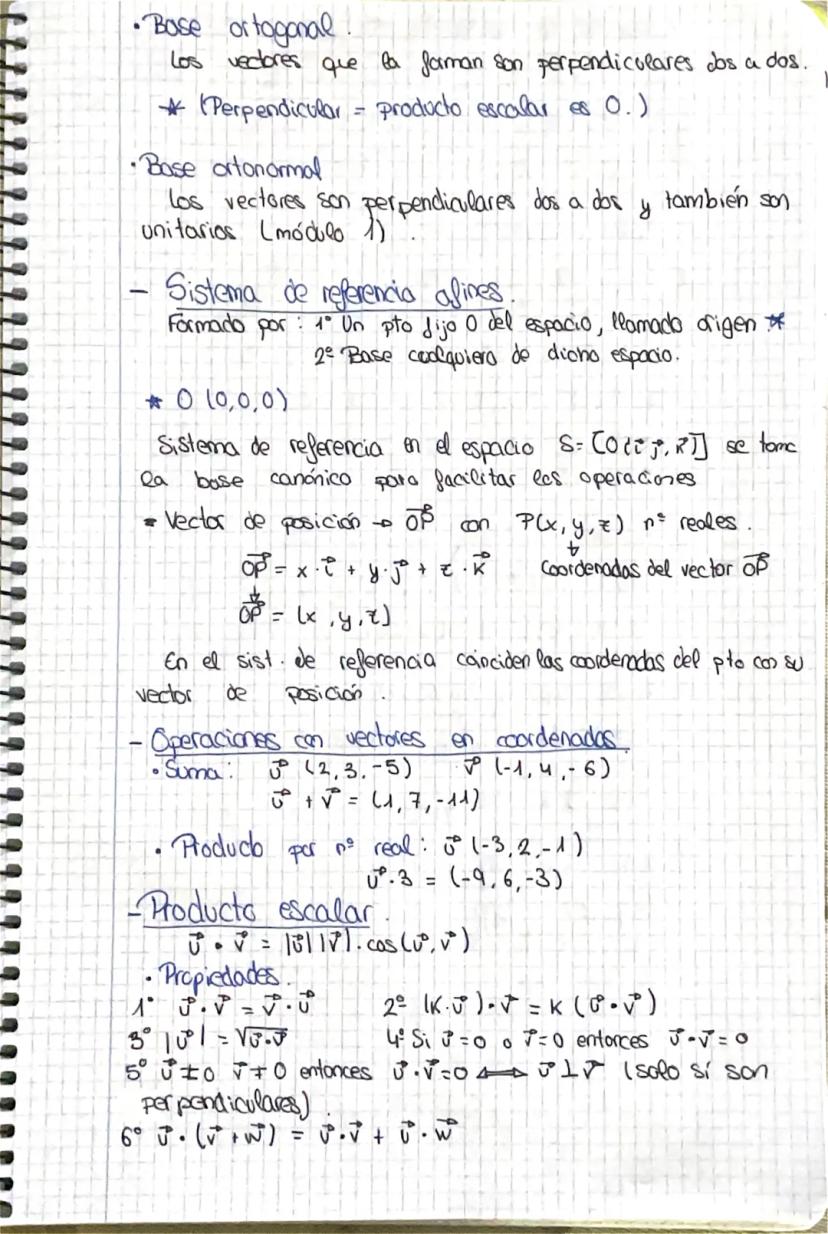 · Base ortogonal.
Los vectores que la forman son perpendiculares dos a dos.
* (Perpendicular = producto escalar es 0.)
· Base ortonormal
Los vectores son perpendiculares dos a dos y también son
unitarios (módulo 1).
- Sistema de referencia afines.
Formado por: 1º Un pto fijo O del espacio, llamado origen *
2º Base cualquiera de dicho espacio.
* O (0,0,0)
Sistema de referencia en el espacio S= [O{i⃗ j⃗, k⃗}] se toma
la base canónica para facilitar las operaciones
- Vector de posición → OP⃗ con P(x,y,z) nº reales.
↓
OP⃗ = x·i⃗ + y·j⃗ + z·k⃗ Coordenadas del vector OP⃗
↓
OP⃗ = (x,y,z)
En el sist. de referencia coinciden las coordenadas del pto con su
vector de posición.
- Operaciones con vectores en coordenadas
· Suma: u⃗ (2,3,-5) v⃗ (-1,4,-6)
u⃗ + v⃗ = (1,7,-11)
· Producto por nº real: u⃗ (-3,2,-1)
u⃗·3 = (-9,6,-3)
- Producto escalar.
u⃗ · v⃗ = |u⃗||v⃗|·cos(u⃗,v⃗)
· Propiedades.
1º u⃗·v⃗ = v⃗·u⃗ 2º (K·u⃗)·v⃗ = K(u⃗·v⃗)
3º |u⃗| = √u⃗·u⃗ 4º Si u⃗=0 o v⃗=0 entonces u⃗·v⃗=0
5º u⃗≠0 v⃗≠0 entonces u⃗·v⃗=0 ⟺ u⃗⊥v⃗ (solo sí son
perpendiculares).
6º u⃗·(v⃗+w⃗) = u⃗·v⃗ + u⃗·w⃗